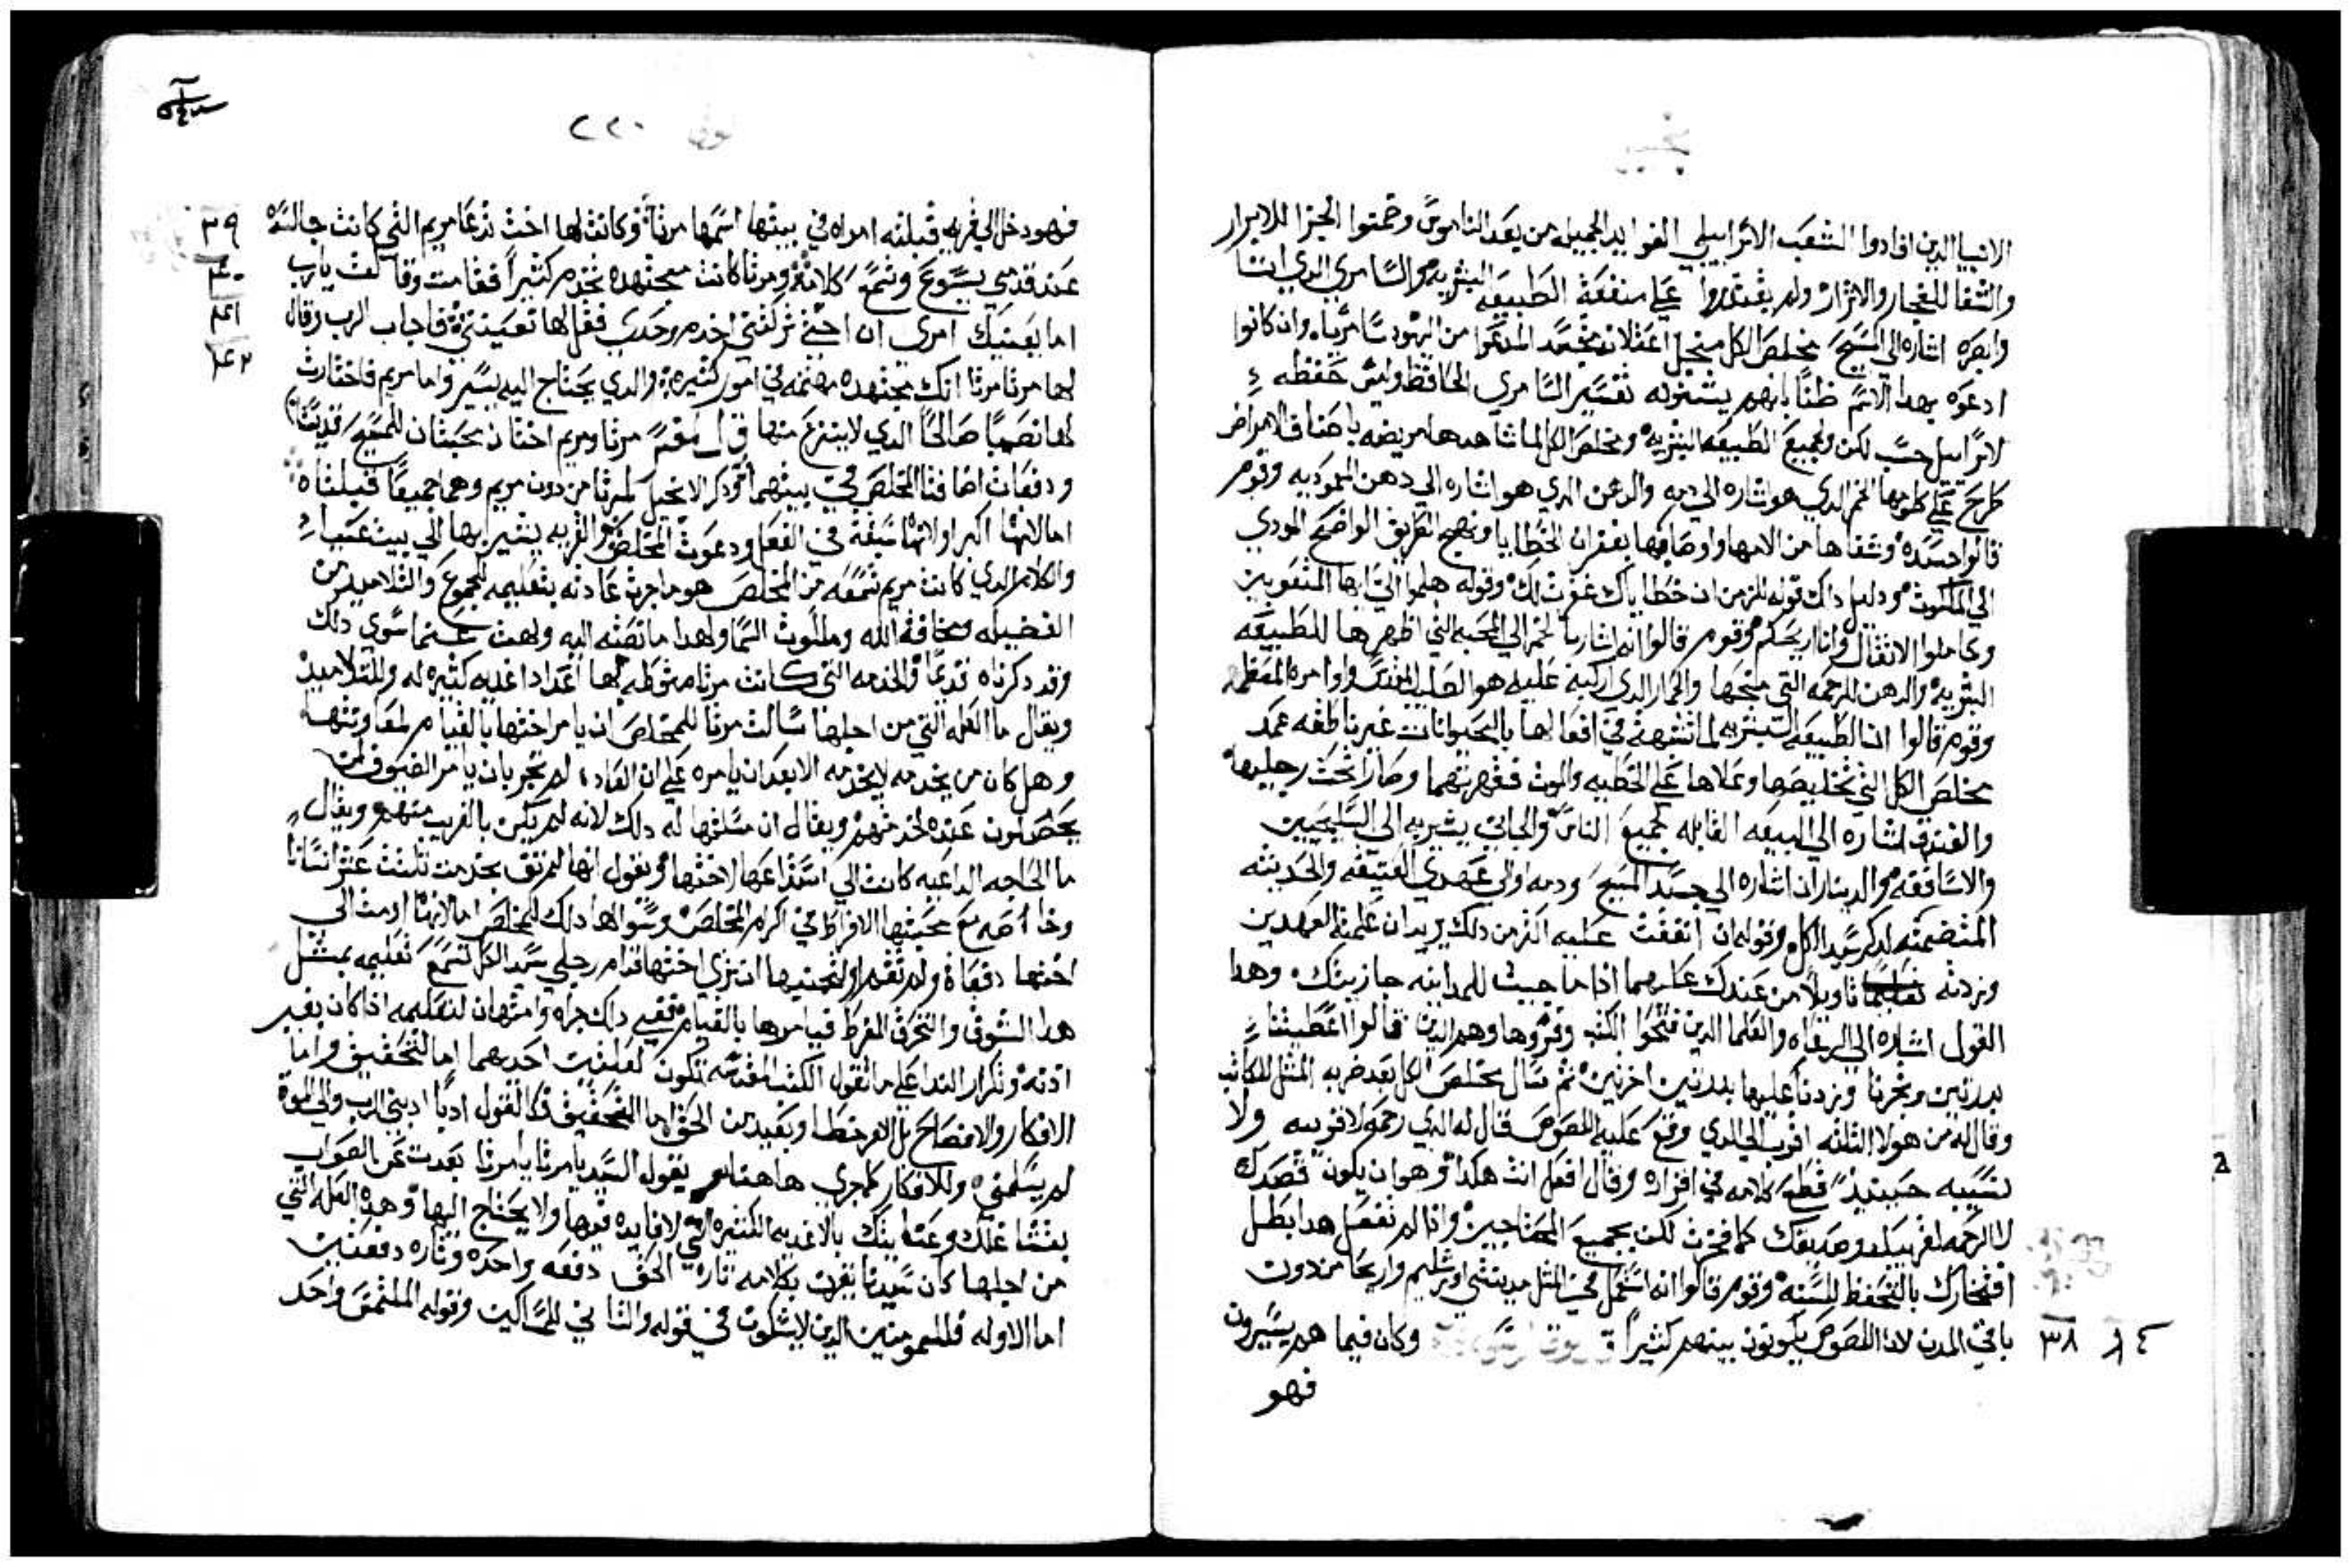 الانبيا الدين افادوا الشعب الاسراييلي الفوايد الجميله من بعد الناموس وضمنوا الجزا للابرار
والشقا للفجار والاشرار ولم يقتدروا على منفعة الطبيعه البشريه والسامري الدي اتا
وابصره اشاره الى المسيح مخلص الكل منجل اعتلانه بجسد المدعوا من اليهود سامريا وان كانوا
ادعوه بهدا الاسم ظنا بانهم يشتموه تفسير السامري الحافظ وليس حفظه
لاسراييل حسب لكن ولجميع الطبيعه البشريه ومخلص الكل لما شاهدها مريضه باصناف الامراض
طرح على كلومها الخمر الدي هو اشاره الى دمه والدهن الدي هو اشاره الى دهن المعموديه وقوم
قالوا جسده وشفاها من الامها واوصابها بغفران الخطايا ونهج الطريق الواضح المودي
الى الملكوت ودليل داك قوله للزمن ان خطاياك غفرت لك وقوله هلموا الي ايها المتعوبين
وحاملوا الاثقال وانا اريحكم وقوم قالوا انه اشار بالخمر الى المحبه التي اظهرها للطبيعه
البشريه والدهن للرحمه التي منحها والحمار الدي اركبه عليه هو الصليب المقدس واوامره المعظمه
وقوم قالوا ان الطبيعه البشريه لما تشبهت في افعالها بالحيوانات غير ناطقه عمد
مخلص الكل الى تخليصها وعلاها على الخطيه والموت فقهرتهما وصارا تحت رجليها
والفندق اشاره الى البيعه القابله لجميع الناس والجاني يشير به الى السليحيين
والاساقفه والديناران اشاره الى جسد المسيح ودمه او الى عهدي العتيقه والحديثه
المتضمنه لدكر سيد الكل وقوله ان انفقت عليه اكثر من دلك يريد ان علمته العهدين
وزدته تاويلا من عندك عليهما ادا ما جيت للمداينه جازيتك وهدا
القول اشاره الى الرعاه والعلما الدين فتحوا الكتب وقروها وهم الدين قالوا اعطيتنا
بدرتين وتجرنا وزدنا عليها بدرتين اخرتين ثم سال مخلص الكل بعد ضربه المثل للكاتب
وقال له من هولا الثلثه اقرب الى الدي وقع عليه اللصوص قال له الدي رحمه لا قريبه ولا
نسيبه حينيد قطع كلامه في اقراره وقال افعل انت هكدا وهو ان يكون قصدك
لا الرحمه لقريبك وصديقك كما فخرت لكن بجميع المحتاجين وادا لم تفعل هدا بطل
افتخارك بالتحفظ للسنه وقوم قالوا انه استعمل في المثل مدينتي اورشليم واريحا من دون
باقي المدن لان اللصوص يكونون بينهم كثيرا وكان فيما هم يسيرون
٣٨
فهو
٢٢٠
فهو دخل الى قريه فقبلته امراه في بيتها اسمها مرتا وكانت لها اخت تدعا مريم التي كانت جالسه
٣٩
عند قدمي يسوع وتسمع كلامه ومرتا كانت مجتهده بخدم كثيرا فقامت وقالت يارب
٤٠
اما يعنيك امري ان اختي تركتني اخدم وحدي فقل لها تعينني فاجاب الرب وقال
٤١
لها مرتا مرتا انك مجتهده مهتمه في امور كثيره والدي يحتاج اليه يسير واما مريم فاختارت
٤٢
لها نصيبا صالحا الدي لا ينتزع منها قال مفسر مرتا ومريم اختان محبتان للمسيح قديستان
ودفعات اضافتا المخلص في بيتهما ودكر الانجيل لمرتا من دون مريم وهما جميعا قبلتاه
اما لانها اكبر او لانها سبقة في الفعل ودعوت المخلص والقريه يشير بها الى بيت عنيا
والكلام الدي كانت مريم تسمعه من المخلص هو ما جرت عادته بتعليمه للجموع والتلاميد من
الفضيله ومخافة الله وملكوت السما ولهدا ما نصته اليه ولهت عنما سوي دلك
وقد دكرناه قديما والخدمه التي كانت مرتا متوطه لها اعداد اغديه كثيره له وللتلاميد
ويقال ما العله التي من اجلها سالت مرتا للمخلص ان يامر اختها بالقيام لمعاونتها
وهل كان من يخدمه لا يخدمه الا بعد ان يامره على ان العاده لم تجر بان يامر الضيوف لمن
يحصلون عنده لخدمتهم ويقال ان مسلتها له دلك لانه لم يكن بالغريب منهم ويقال
ما الحاجه الداعيه كانت الى استدعاها لاختها ونقول انها لم تف بخدمت ثلثت عشر انسانا
وخاصه مع محبتها الافراط في اكرام المخلص وسوالها دلك للمخلص اما لانها اومت الى
اختها دفعاة ولم تقم او لتجنبها ان تري اختها قدام رجلي سيد الكل تسمع تعليمه بمثل
هدا الشوق والتحرق المفرط فيامرها بالقيام ففي داك جراه وامتهان لتعليمه ادا كان بغير
ادنه وتكرار الندا على ما تقول الكتب المقدسه تكون لعلتين احدهما اما للتحقيق واما
الافكار والافضاح بل الامر خطا وبعيد من الحق اما التحقيق فكالقول ادبا ادبني الرب والى الموت
لم يسلمني وللافكار كما جري هاهنا يقول السيد يا مرتا يا مرتا بعدت عن الصواب
بغتتا عملك وعنايتك بالاغديه الكتيره التي لا فايده فيها ولا يحتاج اليها وهده العله التي
من اجلها كان سيدنا يقرن بكلامه تاره الحق دفعه واحده وتاره دفعتين
اما الاوله فللمومنين الدين لا يشكون في قوله والثاني للشاكين وقوله الملتمس واحد